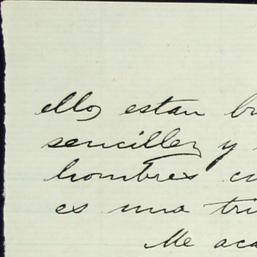 ellos estan
sencillez y
hombres
es una
Me